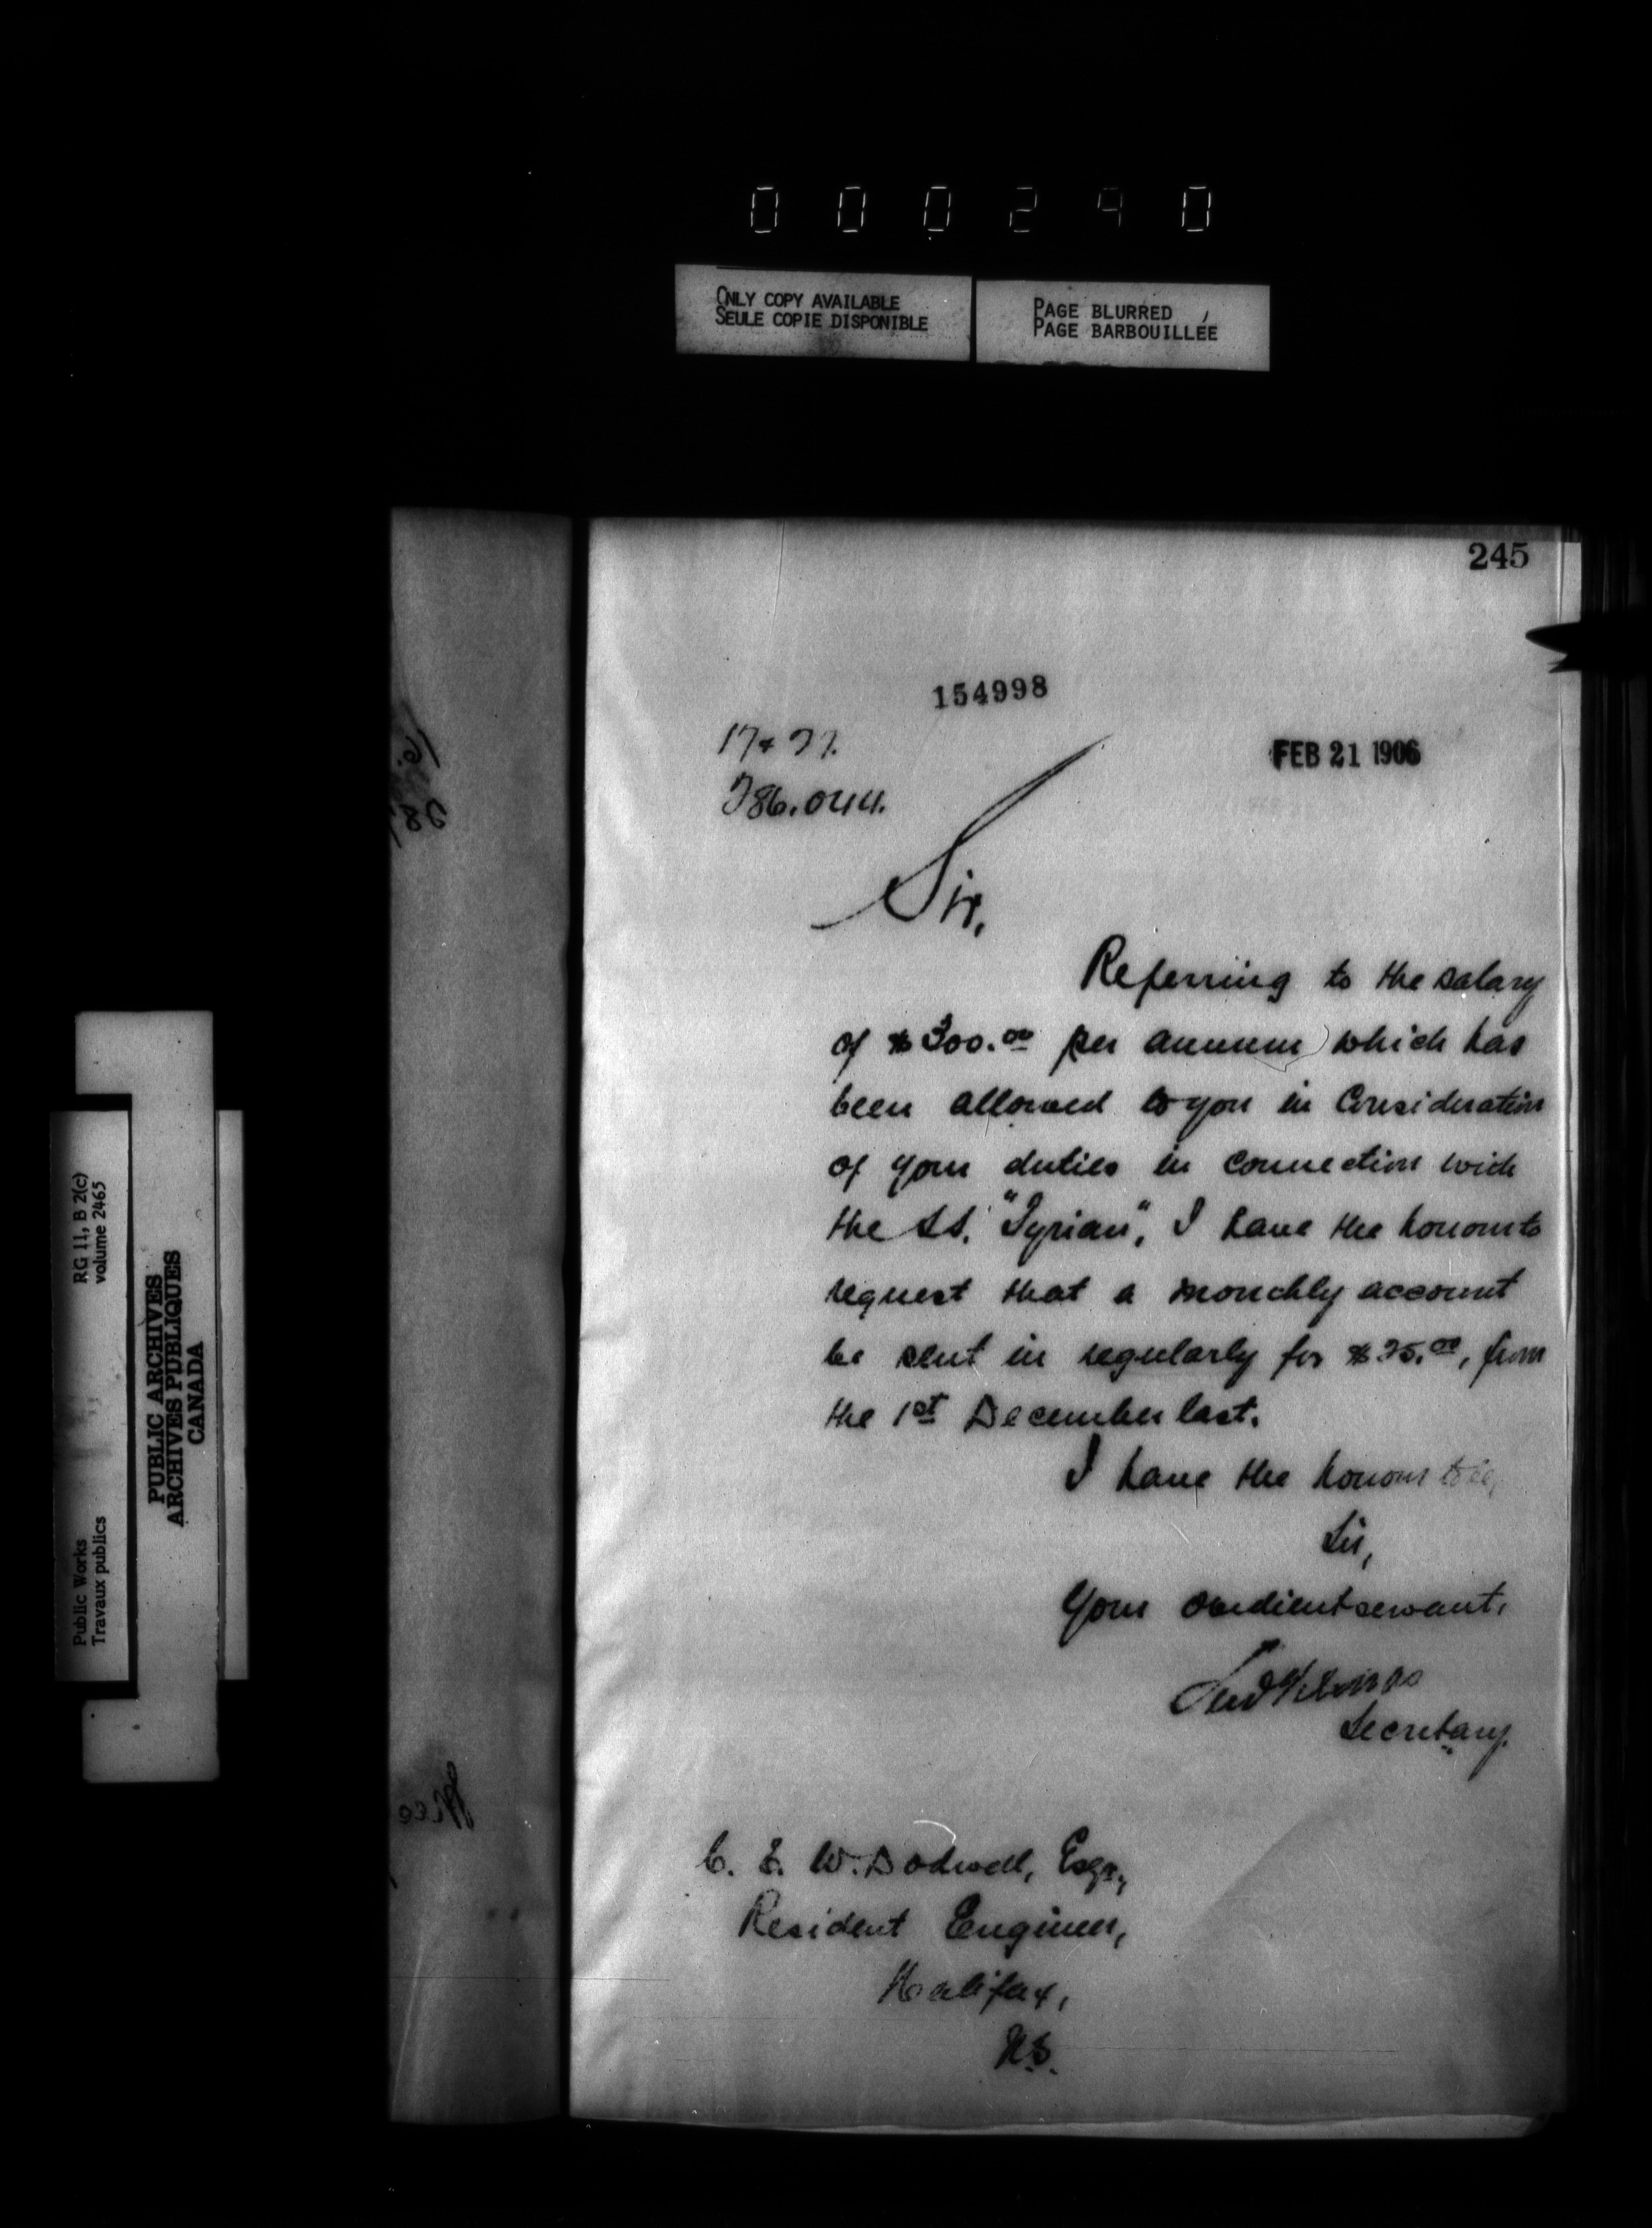 000240
ONLY COPY AVAILABLE
SEULE COPIE DISPONIBLE
PAGE BLURRED
PAGE BARBOUILLÉE
RG 11, B 2(c)
volume 2465
Public Works
Travaux publics
PUBLIC ARCHIVES
ARCHIVES PUBLIQUES
CANADA
245
154998
FEB 21 1906
286.044.
Sir,
Referring to the salary
of $300.00 per annum which has
been allowed to you in Consideration
of your duties in connection with
the SS. "Tyrian", I have the honour to
request that a monthly account
be sent in regularly for $25.00, from
the 1st December last.
I have the honour to be,
Sir,
Your obedient servant,
Secretary.
C. E. W. Dodwell, Esqr.,
Resident Engineer,
Halifax,
N.S.